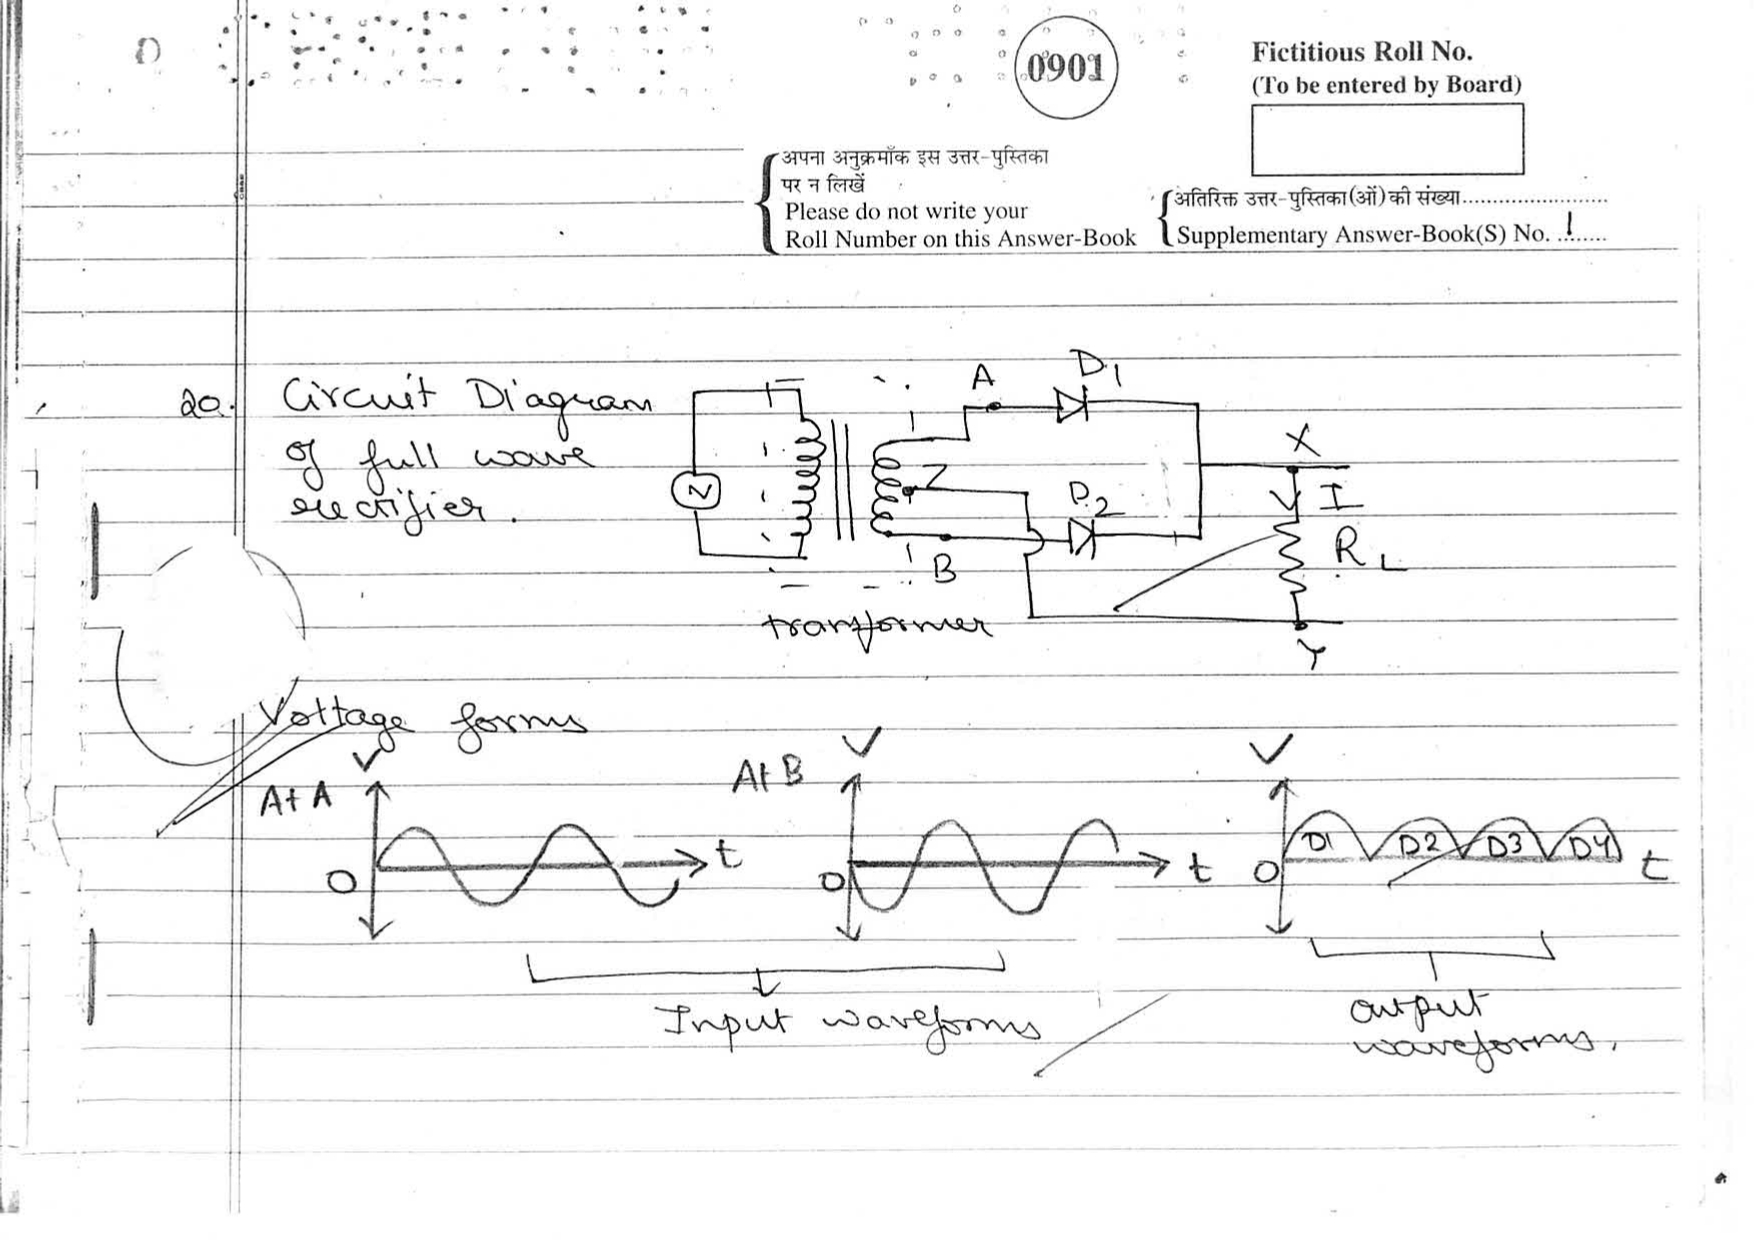 0901
Fictitious Roll No.
(To be entered by Board)
अपना अनुक्रमाँक इस उत्तर-पुस्तिका
पर न लिखें
Please do not write your
Roll Number on this Answer-Book
अतिरिक्त उत्तर-पुस्तिका(ओं) की संख्या........................
Supplementary Answer-Book(S) No. ...1.....
20. Circuit Diagram
of full wave
rectifier.
A D1
X
Z
D2
I
RL
B
transformer
Y
Voltage forms
V V V
At A At B
D1 D2 D3 D4
O t O t O t
Input waveforms
output
waveforms.